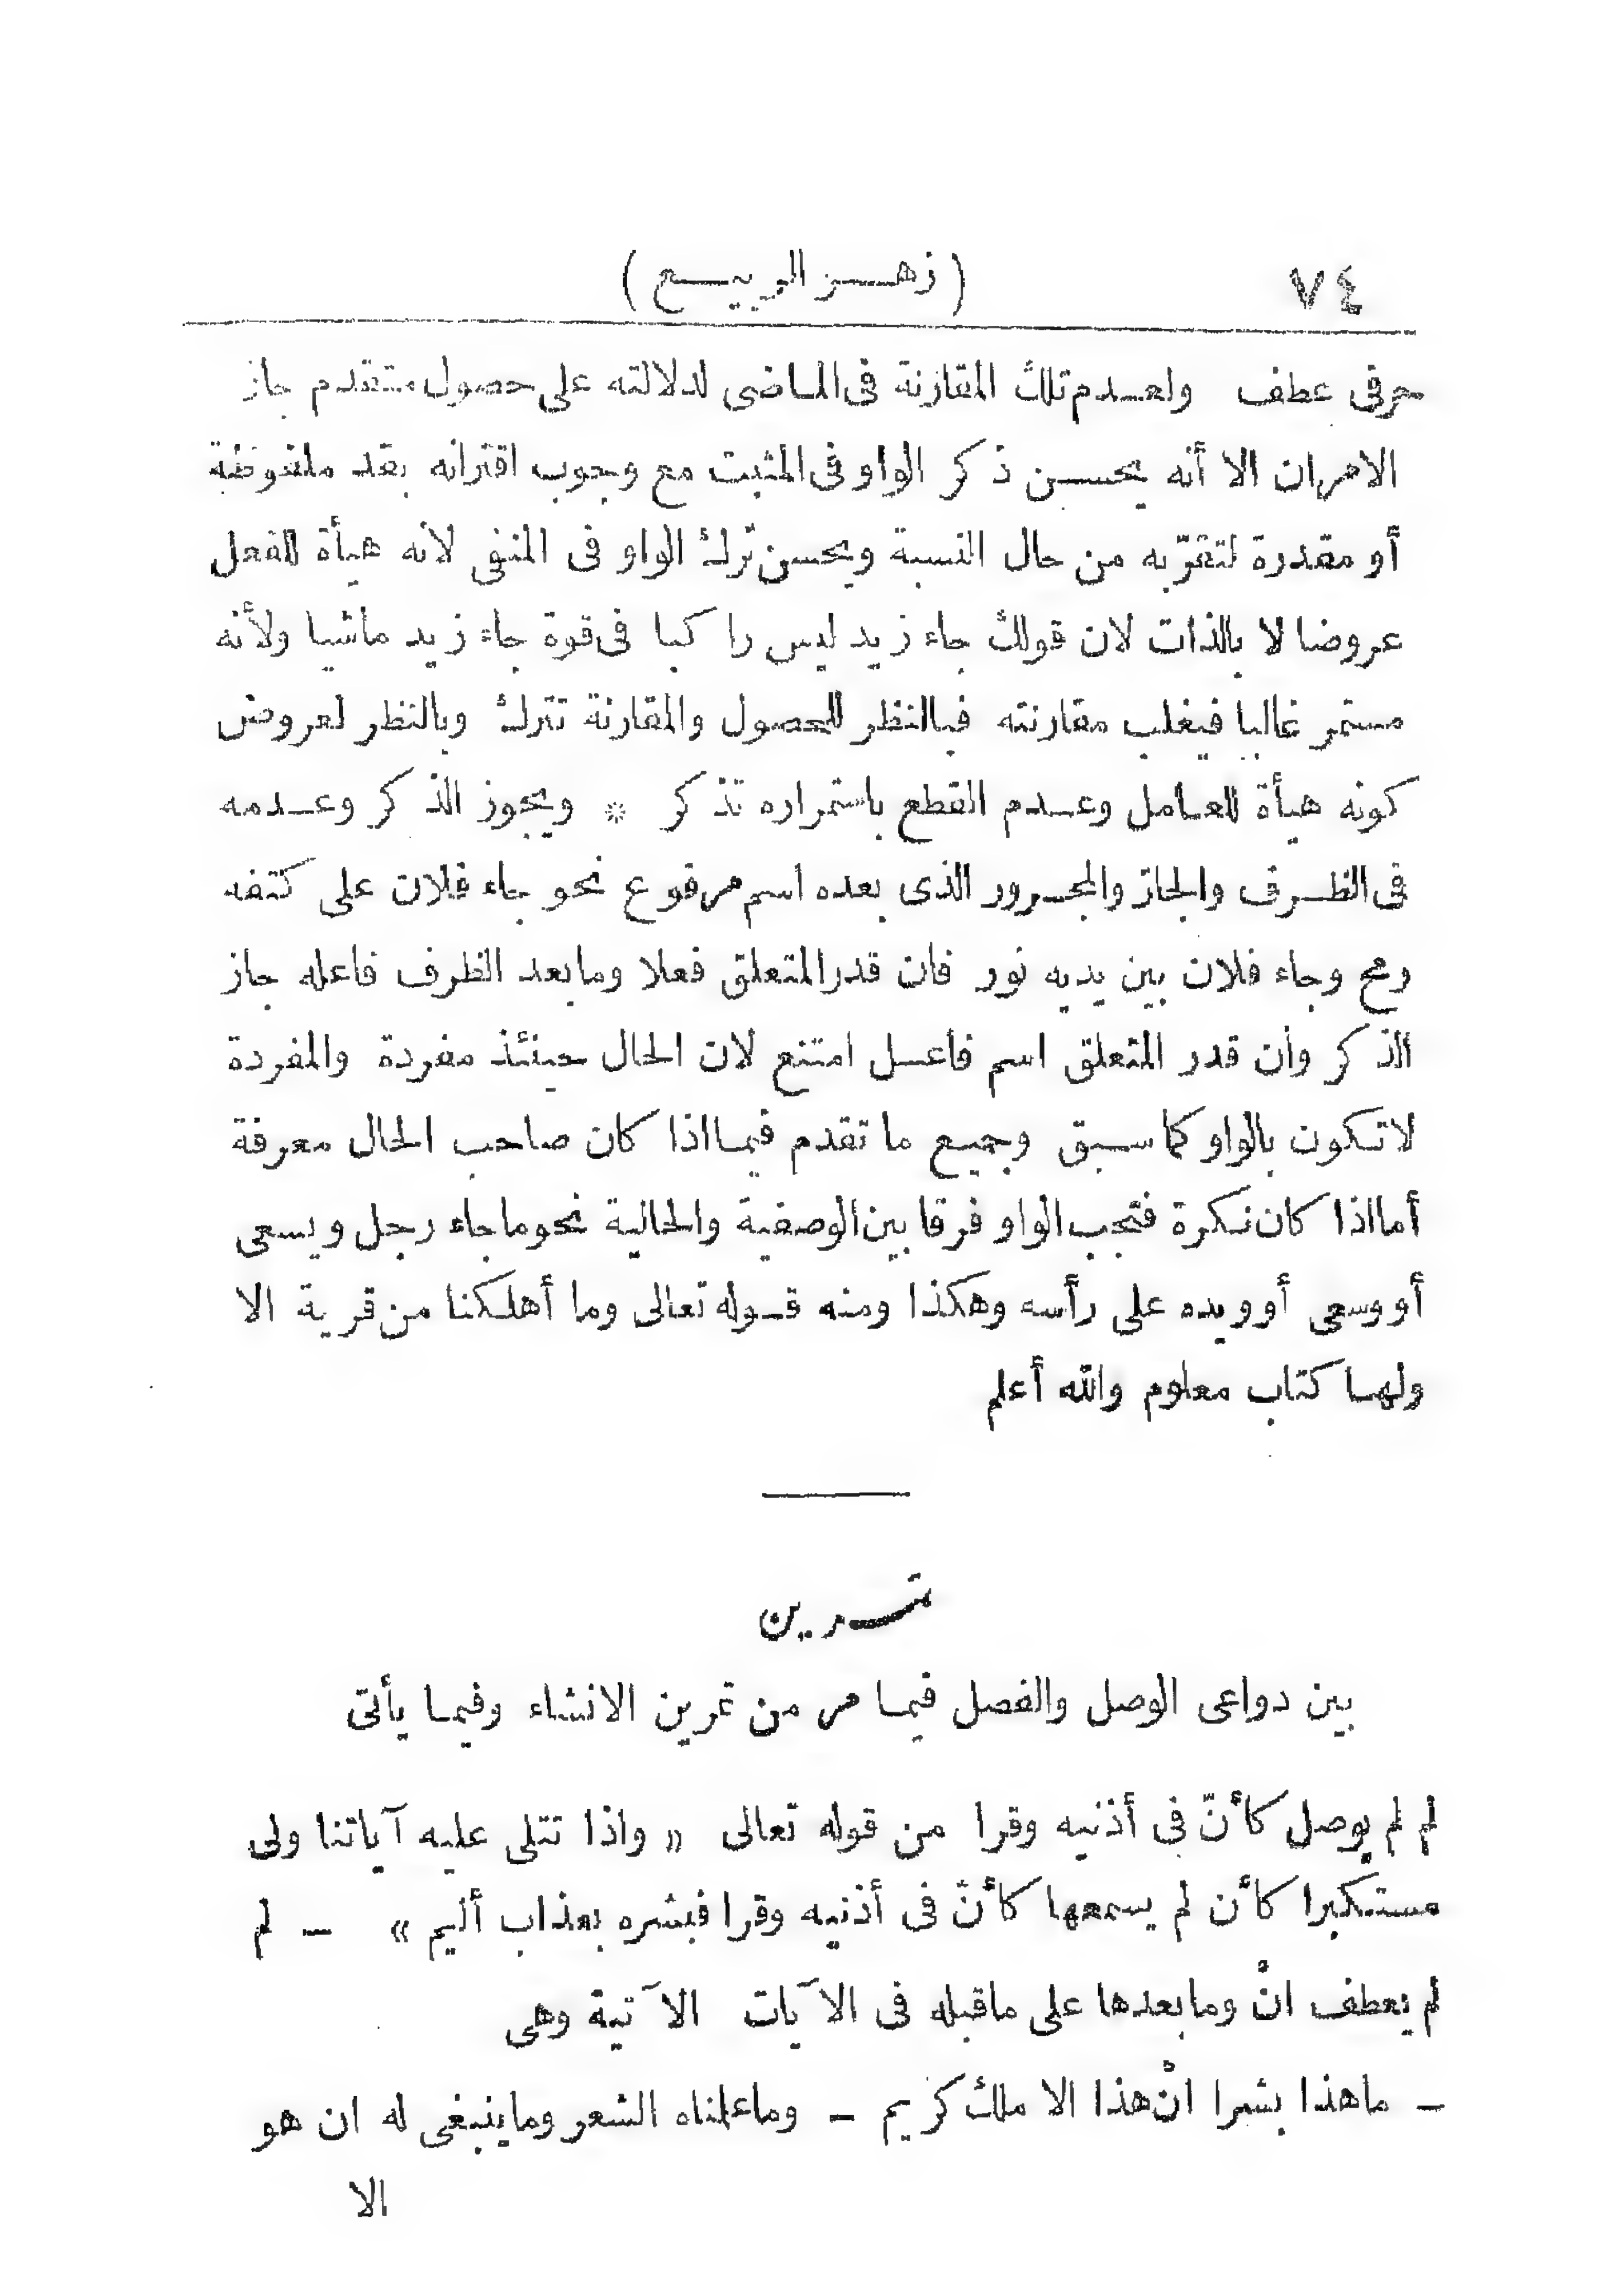 ٧٤
( زهر الربيع )
حرفى عطف ولعدم تلك المقارنة فى الماضى لدلالته على حصول متقدم جاز
الامران الا أنه يحسن ذكر الواو فى المثبت مع وجوب اقترانه بقد ملفوظة
أو مقدرة لتقرّبه من حال النسبة ويحسن ترك الواو فى المنفى لانه هيأة للفعل
عروضا لا بالذات لان قولك جاء زيد ليس راكبا فى قوة جاء زيد ماشيا ولأنه
مستمر غالبا فيغلب مقارنته فبالنظر للحصول والمقارنة تترك وبالنظر لعروض
كونه هيأة للعامل وعدم القطع باستمراره تذكر * ويجوز الذكر وعدمه
فى الظرف والجار والمجرور الذى بعده اسم مرفوع نحو جاء فلان على كتفه
رمح وجاء فلان بين يديه نور فان قدر المتعلق فعلا وما بعد الظرف فاعله جاز
الذكر وان قدر المتعلق اسم فاعل امتنع لان الحال حينئذ مفردة والمفردة
لا تكون بالواو كما سبق وجميع ما تقدم فيما اذا كان صاحب الحال معرفة
أما اذا كان نكرة فتجب الواو فرقا بين الوصفية والحالية نحو ما جاء رجل ويسعى
أو وسعى أو ويده على رأسه وهكذا ومنه قوله تعالى وما أهلكنا من قرية الا
ولها كتاب معلوم والله أعلم
تمرين
بين دواعى الوصل والفصل فيما مر من تمرين الانشاء وفيما يأتى
لم لم يوصل كأنّ فى أذنيه وقرا من قوله تعالى « واذا تتلى عليه آياتنا ولى
مستكبرا كأن لم يسمعها كأنّ فى أذنيه وقرا فبشره بعذاب أليم » – لم
لم يعطف انْ وما بعدها على ما قبله فى الآيات الآتية وهى
– ما هذا بشرا انْ هذا الا ملك كريم – وما علمناه الشعر وما ينبغى له ان هو
الا